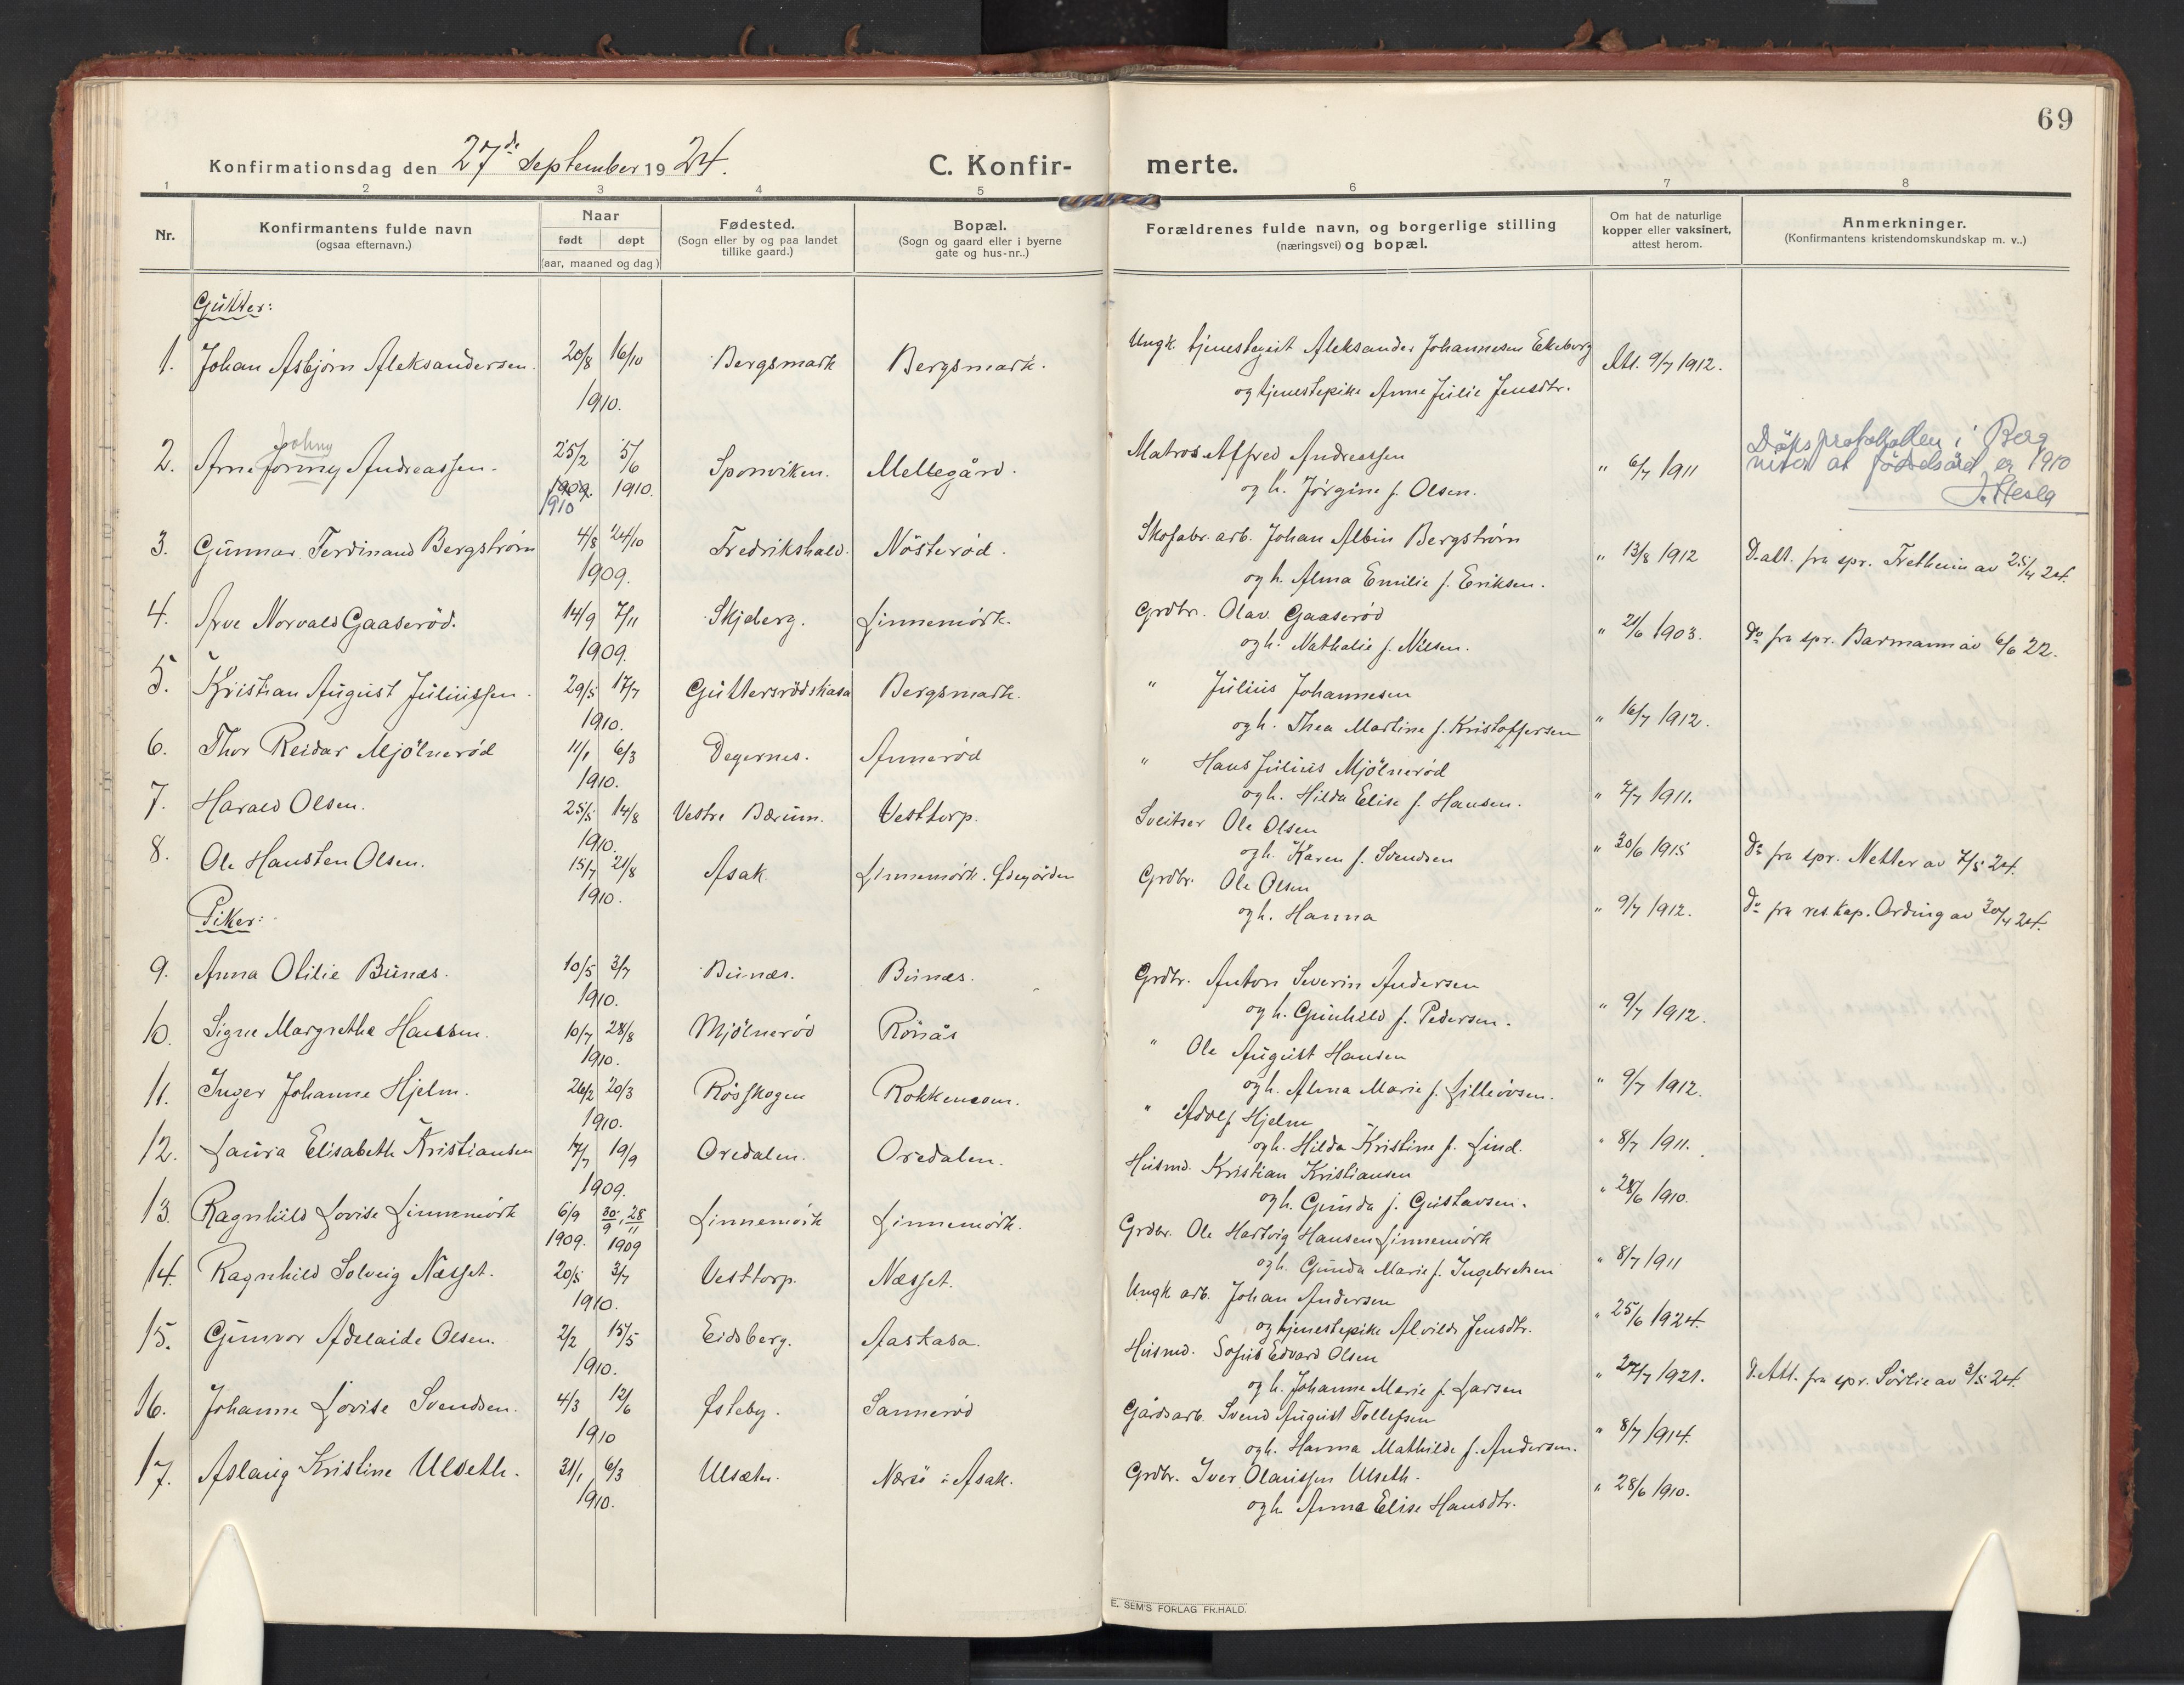 69
Konfirmationsdag den 27de September 1924.
C. Konfir-
merte.
1 2 3 4 5 6 7 8
Nr.
Konfirmantens fulde navn
(ogsaa efternavn.)
Naar
født døpt
(aar, maaned og dag)
Fødested.
(Sogn eller by og paa landet
tillike gaard.)
Bopæl.
(Sogn og gaard eller i byerne
gate og hus-nr..)
Forældrenes fulde navn, og borgerlige stilling
(næringsvei) og bopæl.
Om hat de naturlige
kopper eller vaksinert,
attest herom.
Anmerkninger.
(Konfirmantens kristendomskundskap m. v..)
Gutter:
1. Johan Asbjørn Aleksandersen. 20/8 16/10 1910. Bergsmark Bergsmark.
Ungk. tjenestegut Aleksander Johannesen Ekeberg
og tjenestepike Anne Julie Jensdtr.
Att. 9/7 1912.
Johny
2. Arne Jonny Andreassen. 25/2 5/6 1909. 1910. 1910 Sponviken. Mellegård.
Matros Alfred Andreassen
og h. Jørgine f. Olsen.
" 6/7 1911
Dåpsprotokollen i Berg
viser at fødselsåret er 1910
J. Hesla
3. Gunnar Ferdinand Bergstrøm 4/8 24/10 1909. Fredrikshald. Nøsterød.
Skofabr. arb. Johan Albin Bergstrøm
og h. Alma Emilie f. Eriksen.
" 13/8 1912
D.att. fra spr. Tretheim av 25/4 24.
4. Arve Norvald Gaaserød. 14/9 7/11 1909. Skjeberg. Linnemørk.
Grdbr. Olav Gaaserød
og h. Nathalie f. Nilsen.
" 21/6 1903.
Do fra spr. Barmann av 6/6 22.
5. Kristian August Juliussen. 29/5 17/7 1910. Guttersrødskasa Bergsmark.
" Julius Johannesen
og h. Thea Martine f. Kristoffersen
" 16/7 1912.
6. Thor Reidar Mjølnerød 11/1 6/3 1910. Degernes. Annerød
" Hans Julius Mjølnerød
og h. Hilda Elise f. Hansen.
" 7/7 1911.
7. Harald Olsen. 25/5 14/8 1910. Vestre Bærum. Vesttorp.
Sveitser Ole Olsen
og h. Karen f. Svendsen
" 30/6 1915
Do fra spr. Netter av 7/5 24.
8. Ole Hansten Olsen. 15/7 21/8 1910. Asak Linnemørk. Ødegården
Grdbr. Ole Olsen
og h. Hanna
" 9/7 1912.
Do fra res. kap. Ording av 30/4 24.
Piker:
9. Anna Otilie Bunæs. 10/5 3/7 1910. Bunæs. Bunæs.
Grdbr. Anton Severin Andersen
og h. Gunhild f. Pedersen.
" 9/7 1912.
10. Signe Margrethe Hansen. 10/7 28/8 1910. Mjølnerød Rønås
" Ole August Hansen
og h. Alma Marie f. Lilleøvsen.
" 9/7 1912.
11. Inger Johanne Hjelm. 26/2 20/3 1910. Røsskogen Rokkensom.
" Adolf Hjelm
og h. Hilda Kristine f. Lind.
" 8/7 1911.
12. Laura Elisabeth Kristiansen 17/7 19/9 1909. Oredalen. Oredalen.
Husmd. Kristian Kristiansen
og h. Gunda f. Gustavsen.
" 28/6 1910.
13. Ragnhild Lovise Linnemørk 6/9 30/9, 28/11 1909. 1909 Linnemørk Linnemørk.
Grdbr. Ole Hartvig Hansen Linnemørk
og h. Gunda Marie f. Ingebretsen
" 8/7 1911
14. Ragnhild Solveig Næsset. 20/5 3/7 1910. Vesttorp. Næsset.
Ungk. arb. Johan Andersen
og tjenestepike Alvilde Jensdtr.
" 25/6 1924.
15. Gunvor Adelaide Olsen. 2/2 15/5 1910. Eidsberg. Aaskasa.
Husmd. Sofus Edvard Olsen
og h. Johanne Marie f. Larsen
" 27/7 1921.
D.Att. fra spr. Sørlie av 3/5 24.
16. Johanne Lovise Svendsen. 4/3 12/6 1910 Østeby. Sannerød
Gårdsarb. Svend August Tollefsen
og h. Hanna Mathilde f. Andersen.
" 8/7 1914.
17. Aslaug Kristine Ulseth. 31/1 6/3 1910. Ulsæter. Næssø i Asak.
Grdbr. Iver Olaussen Ulseth.
og h. Anna Elise Hansdtr.
" 28/6 1910.
E. SEM'S FORLAG FR.HALD.